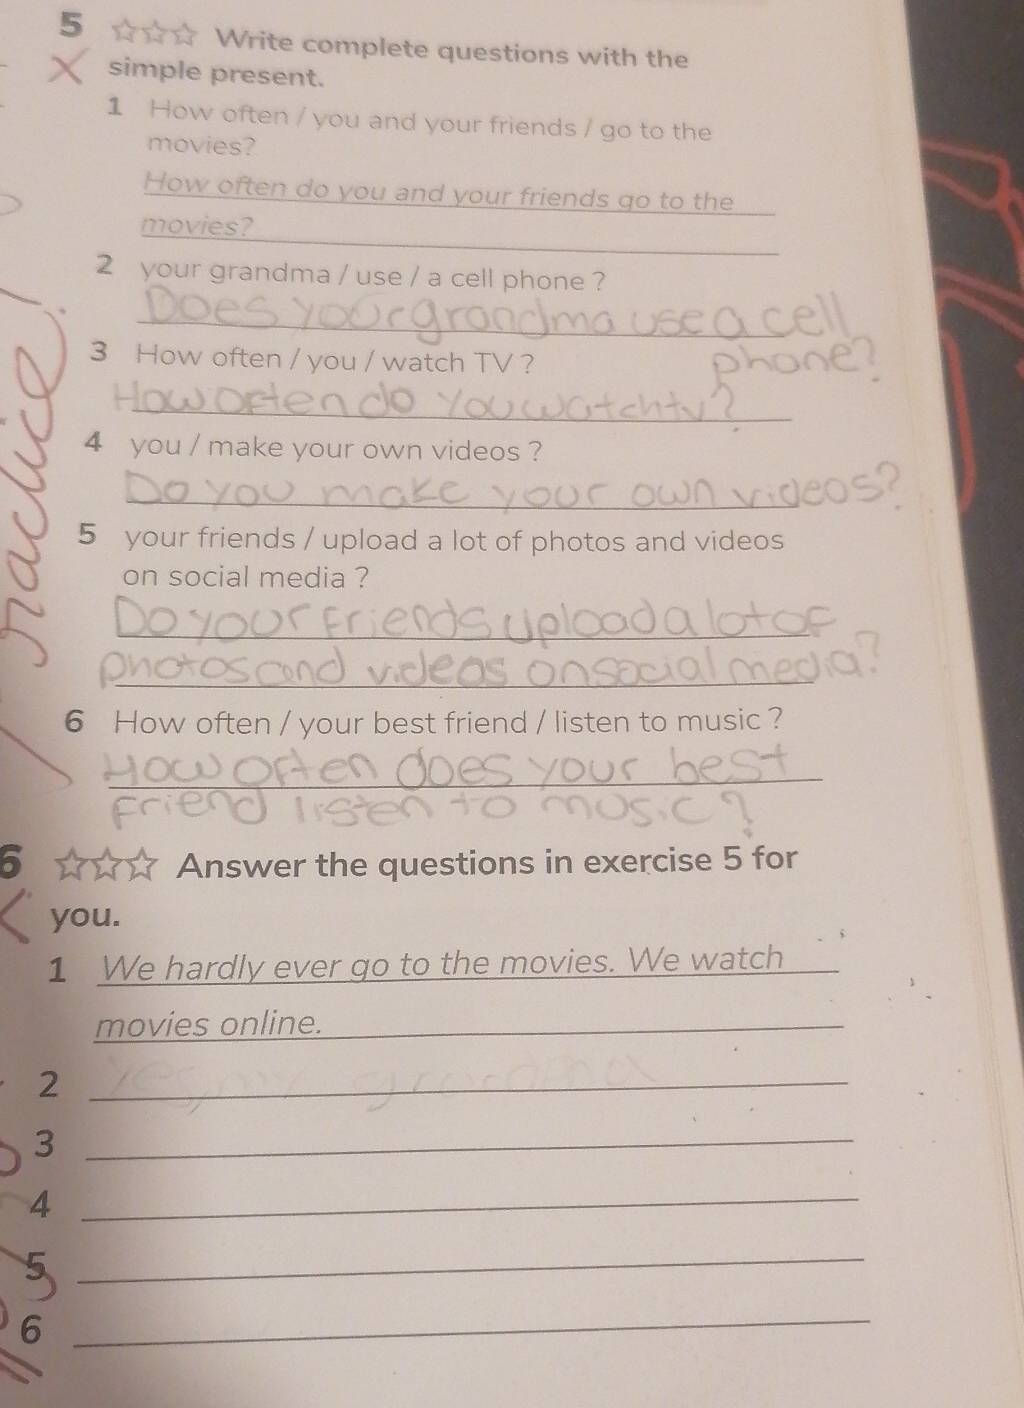 5 ☆☆☆ Write complete questions with the
simple present.
1 How often / you and your friends / go to the
movies?
How often do you and your friends go to the
movies?
2 your grandma / use / a cell phone ?
Does your grandma use a cell
phone?
3 How often / you / watch TV ?
How often do you watch tv?
4 you / make your own videos ?
Do you make your own videos?
5 your friends / upload a lot of photos and videos
on social media ?
Do your friends upload a lot of
photos and videos on social media?
6 How often / your best friend / listen to music ?
How often does your best
friend listen to music?
6 ☆☆☆ Answer the questions in exercise 5 for
you.
1 We hardly ever go to the movies. We watch
movies online.
2 Yes, my grandma
3
4
5
6